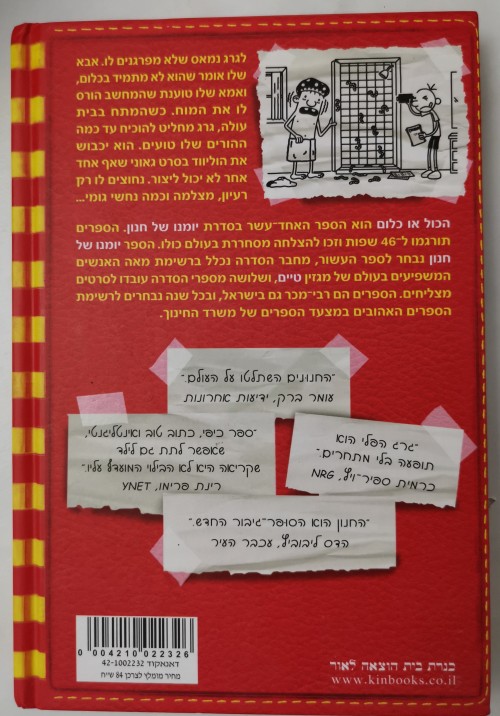 לגרג נמאס שלא מפרגנים לו. אבא
שלו אומר שהוא לא מתמיד בכלום,
ואמא שלו טוענת שהמחשב הורס
לו את המוח. כשהמתח בבית
עולה, גרג מחליט להוכיח עד כמה
ההורים שלו טועים. הוא יכבוש
את הוליווד בסרט גאוני שאף אחד
אחר לא יכול ליצור. נחוצים לו רק
רעיון, מצלמה וכמה נחשי גומי...
הכול או כלום הוא הספר האחד־עשר בסדרת יומנו של חנון. הספרים
תורגמו ל־46 שפות וזכו להצלחה מסחררת בעולם כולו. הספר יומנו של
חנון נבחר לספר העשור, מחבר הסדרה נכלל ברשימת מאה האנשים
המשפיעים בעולם של מגזין טיים, ושלושה מספרי הסדרה עובדו לסרטים
מצליחים. הספרים הם רבי־מכר גם בישראל, ובכל שנה נבחרים לרשימת
הספרים האהובים במצעד הספרים של משרד החינוך.
"החנונים השתלטו על העולם."
עומר ברק, ידיעות אחרונות
"ספר כיפי, כתוב טוב ואינטליגנטי,
שאפשר לתת גם לילד
שקריאה היא לא הבילוי המועדף עליו."
רינת פרימו, YNET
"גרג הפלי הוא
תופעה בלי מתחרים."
כרמית ספיר־ויץ, NRG
"החנון הוא הסופר־גיבור החדש."
הדס ליבוביץ, עכבר העיר
0 004210 022326
דאנאקוד 42-1002232
מחיר מומלץ לצרכן 84 ש״ח
כנרת בית הוצאה לאור
www.kinbooks.co.il